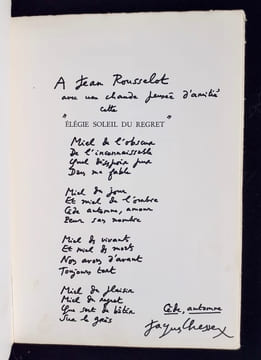 A Jean Rousselot
avec une chaude pensée d'amitié
cette
"ÉLÉGIE SOLEIL DU REGRET"
Miel de l'obscur
De l'inconnaissable
Quel d'espoir pur
Dans ma fable
Miel du jour
Et miel de l'ombre
Cède automne, amour
Leur sans nombre
Miel des vivants
Et miel des morts
Nos avers d'avant
Toujours tort
Miel du plaisir
Miel du regret
Que sont
Sur le grès
Cède, automne
Jacques Chessex